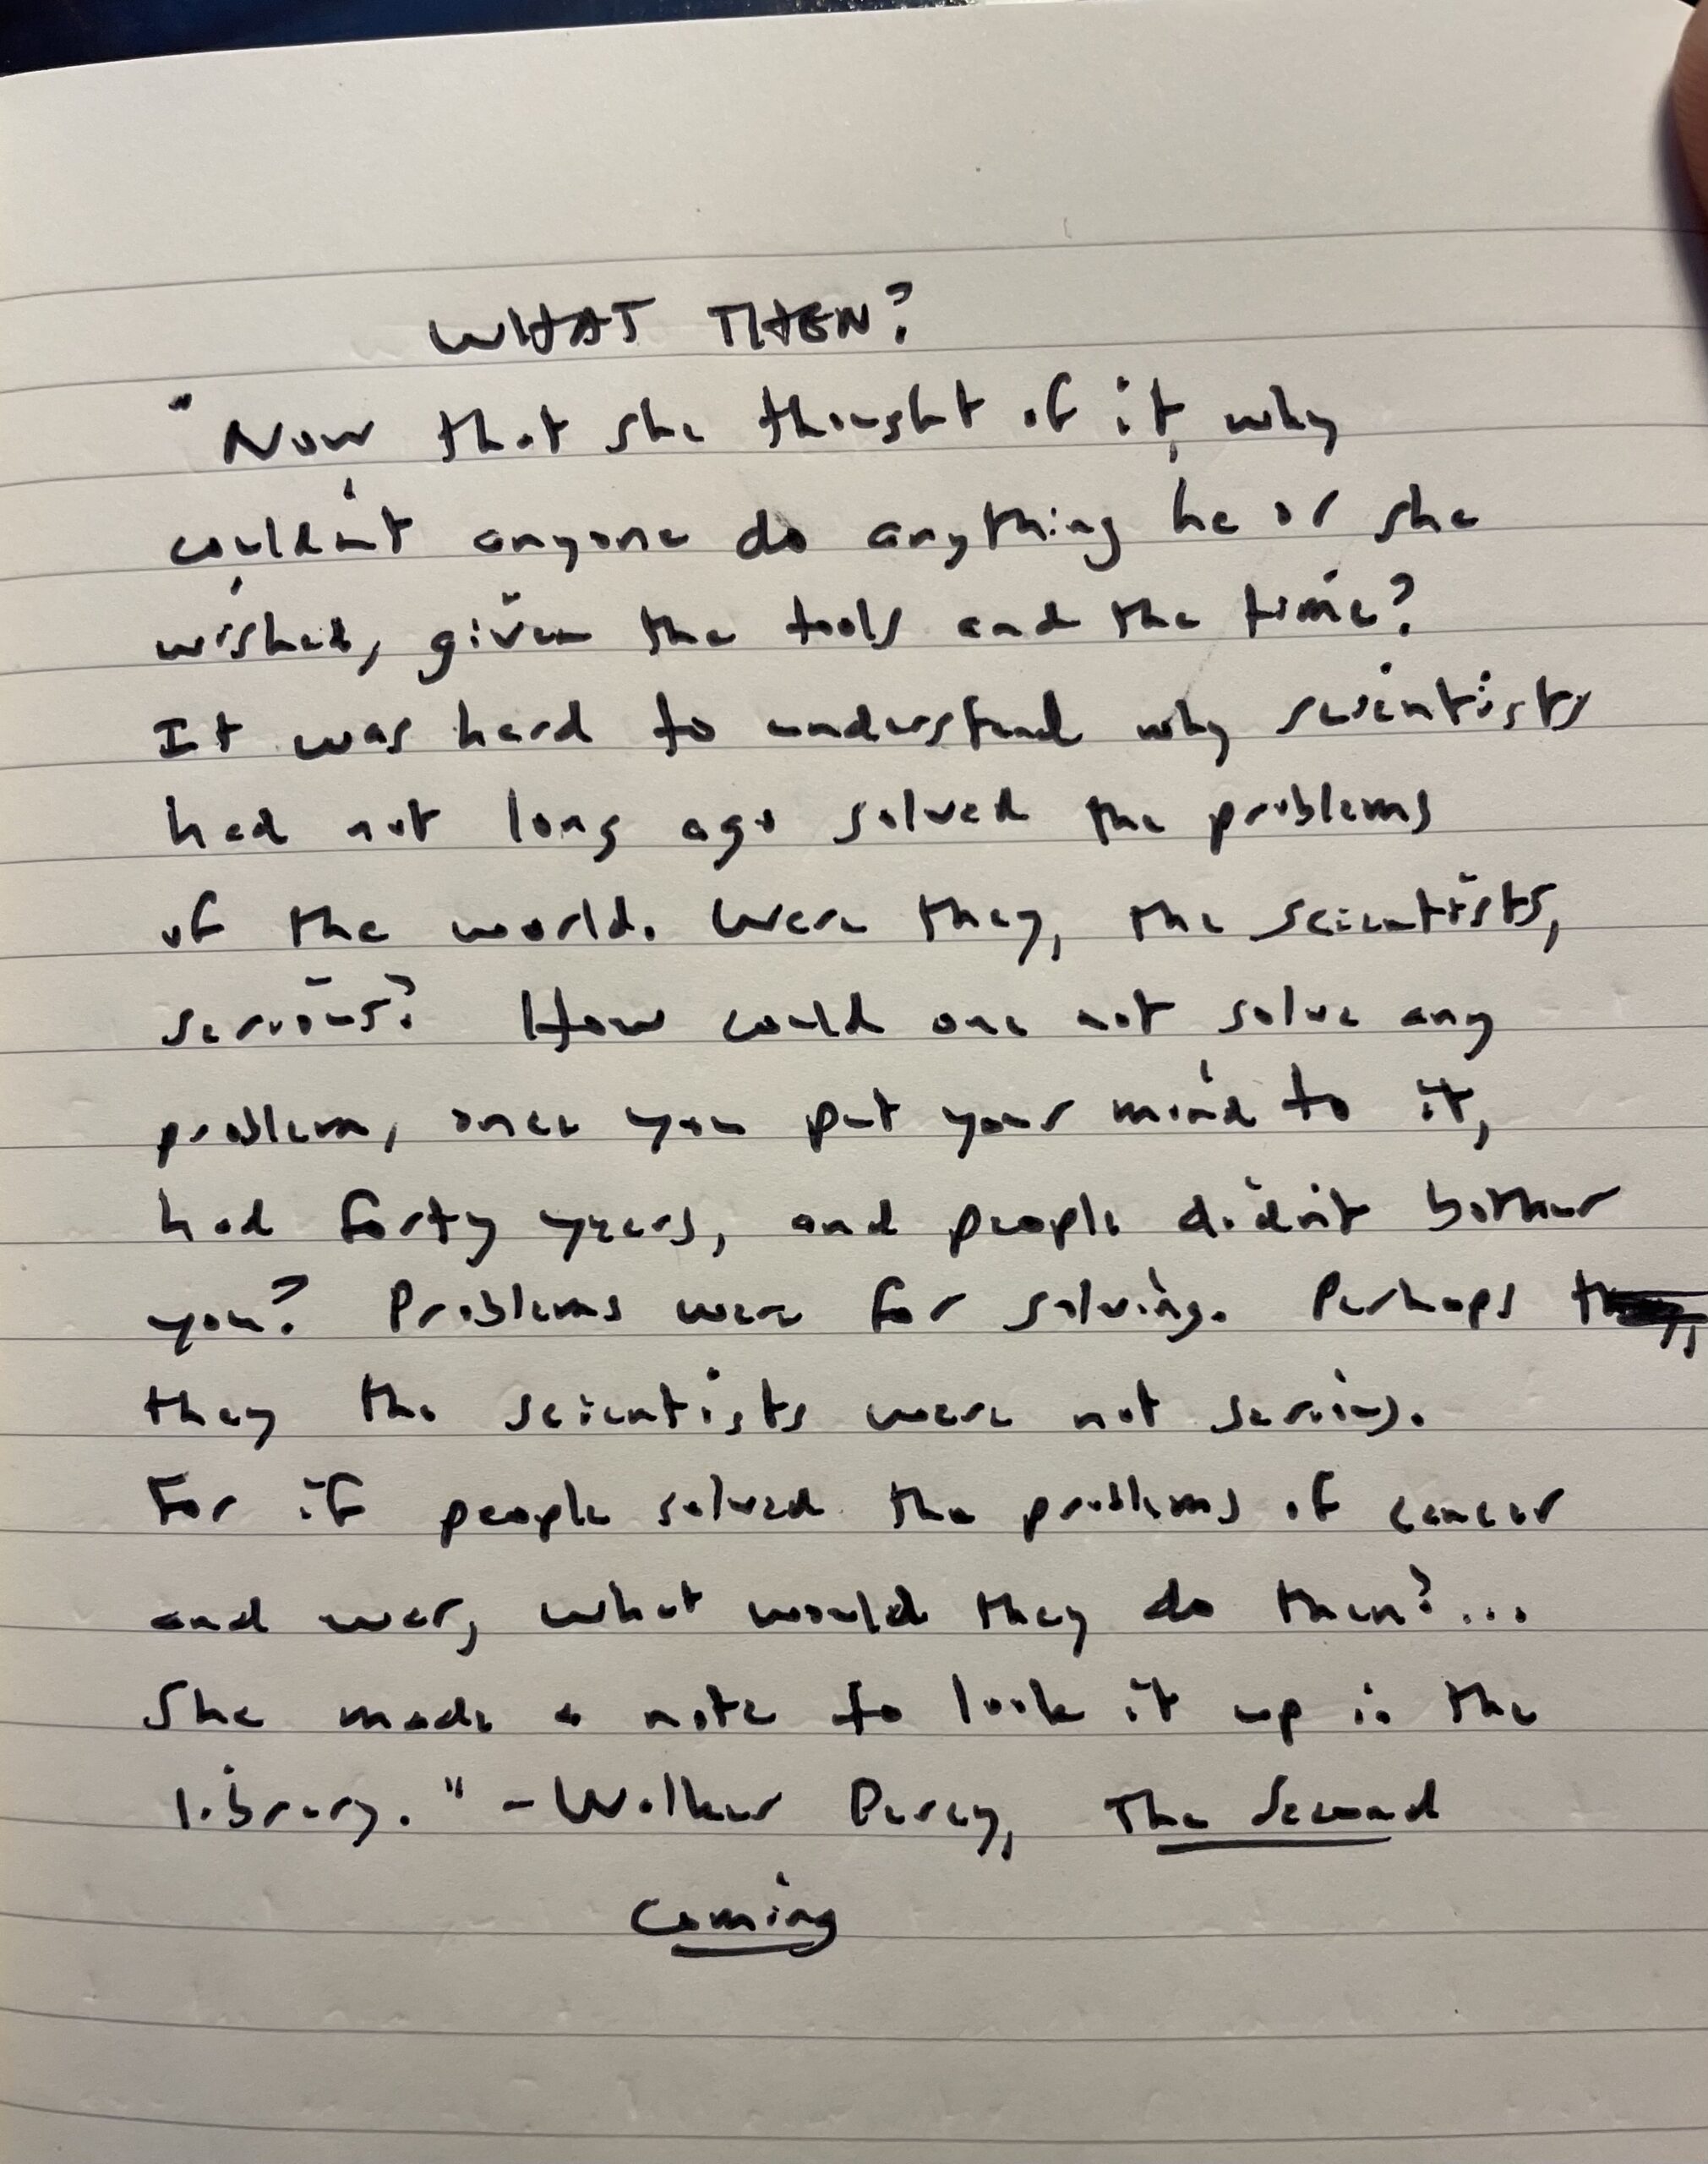 WHAT THEN?
"Now that she thought of it, why
couldn't anyone do anything he or she
wished, given the tools and the time?
It was hard to understand why scientists
had not long ago solved the problems
of the world. Were they, the scientists,
serious? How could one not solve any
problem, once you put your mind to it,
had forty years, and people didn't bother
you? Problems were for solving. Perhaps
they the scientists were not serious.
For if people solved the problems of cancer
and war, what would they do then?...
She made a note to look it up in the
library." - Walker Percy, The Second
Coming